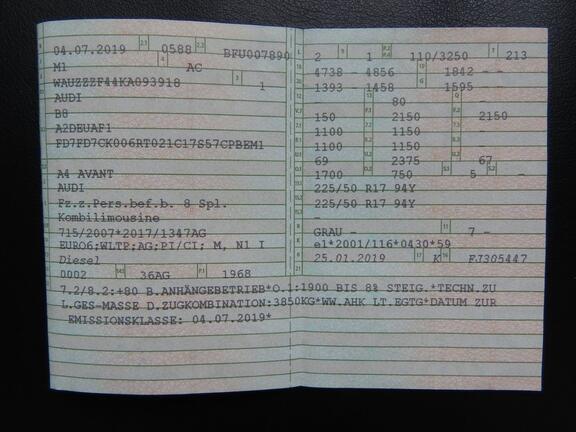 04.07.2019 0588 BFU007890
M1 AC
WAUZZZF44KA093918 1
AUDI
B8
A2DEUAF1
FD7FD7CK006RT021C17S57CPBEM1
A4 AVANT
AUDI
Fz.z.Pers.bef.b. 8 Spl.
Kombilimousine
715/2007*2017/1347AG
EURO6;WLTP;AG;PI/CI; M, N1 I
Diesel
0002 36AG 1968
2 1 110/3250 213
4738 - 4856 1842 - -
1393 - 1458 1595 - -
- 80 -
150 2150 2150
1100 1150 -
1100 1150 -
69 2375 67
1700 750 5 -
225/50 R17 94Y
225/50 R17 94Y
-
GRAU - 7 -
e1*2001/116*0430*59
25.01.2019 K FJ305447
7.2/8.2:+80 B.ANHÄNGEBETRIEB*O.1:1900 BIS 8% STEIG.*TECHN.ZU
L.GES-MASSE D.ZUGKOMBINATION:3850KG*WW.AHK LT.EGTG*DATUM ZUR
EMISSIONSKLASSE: 04.07.2019*